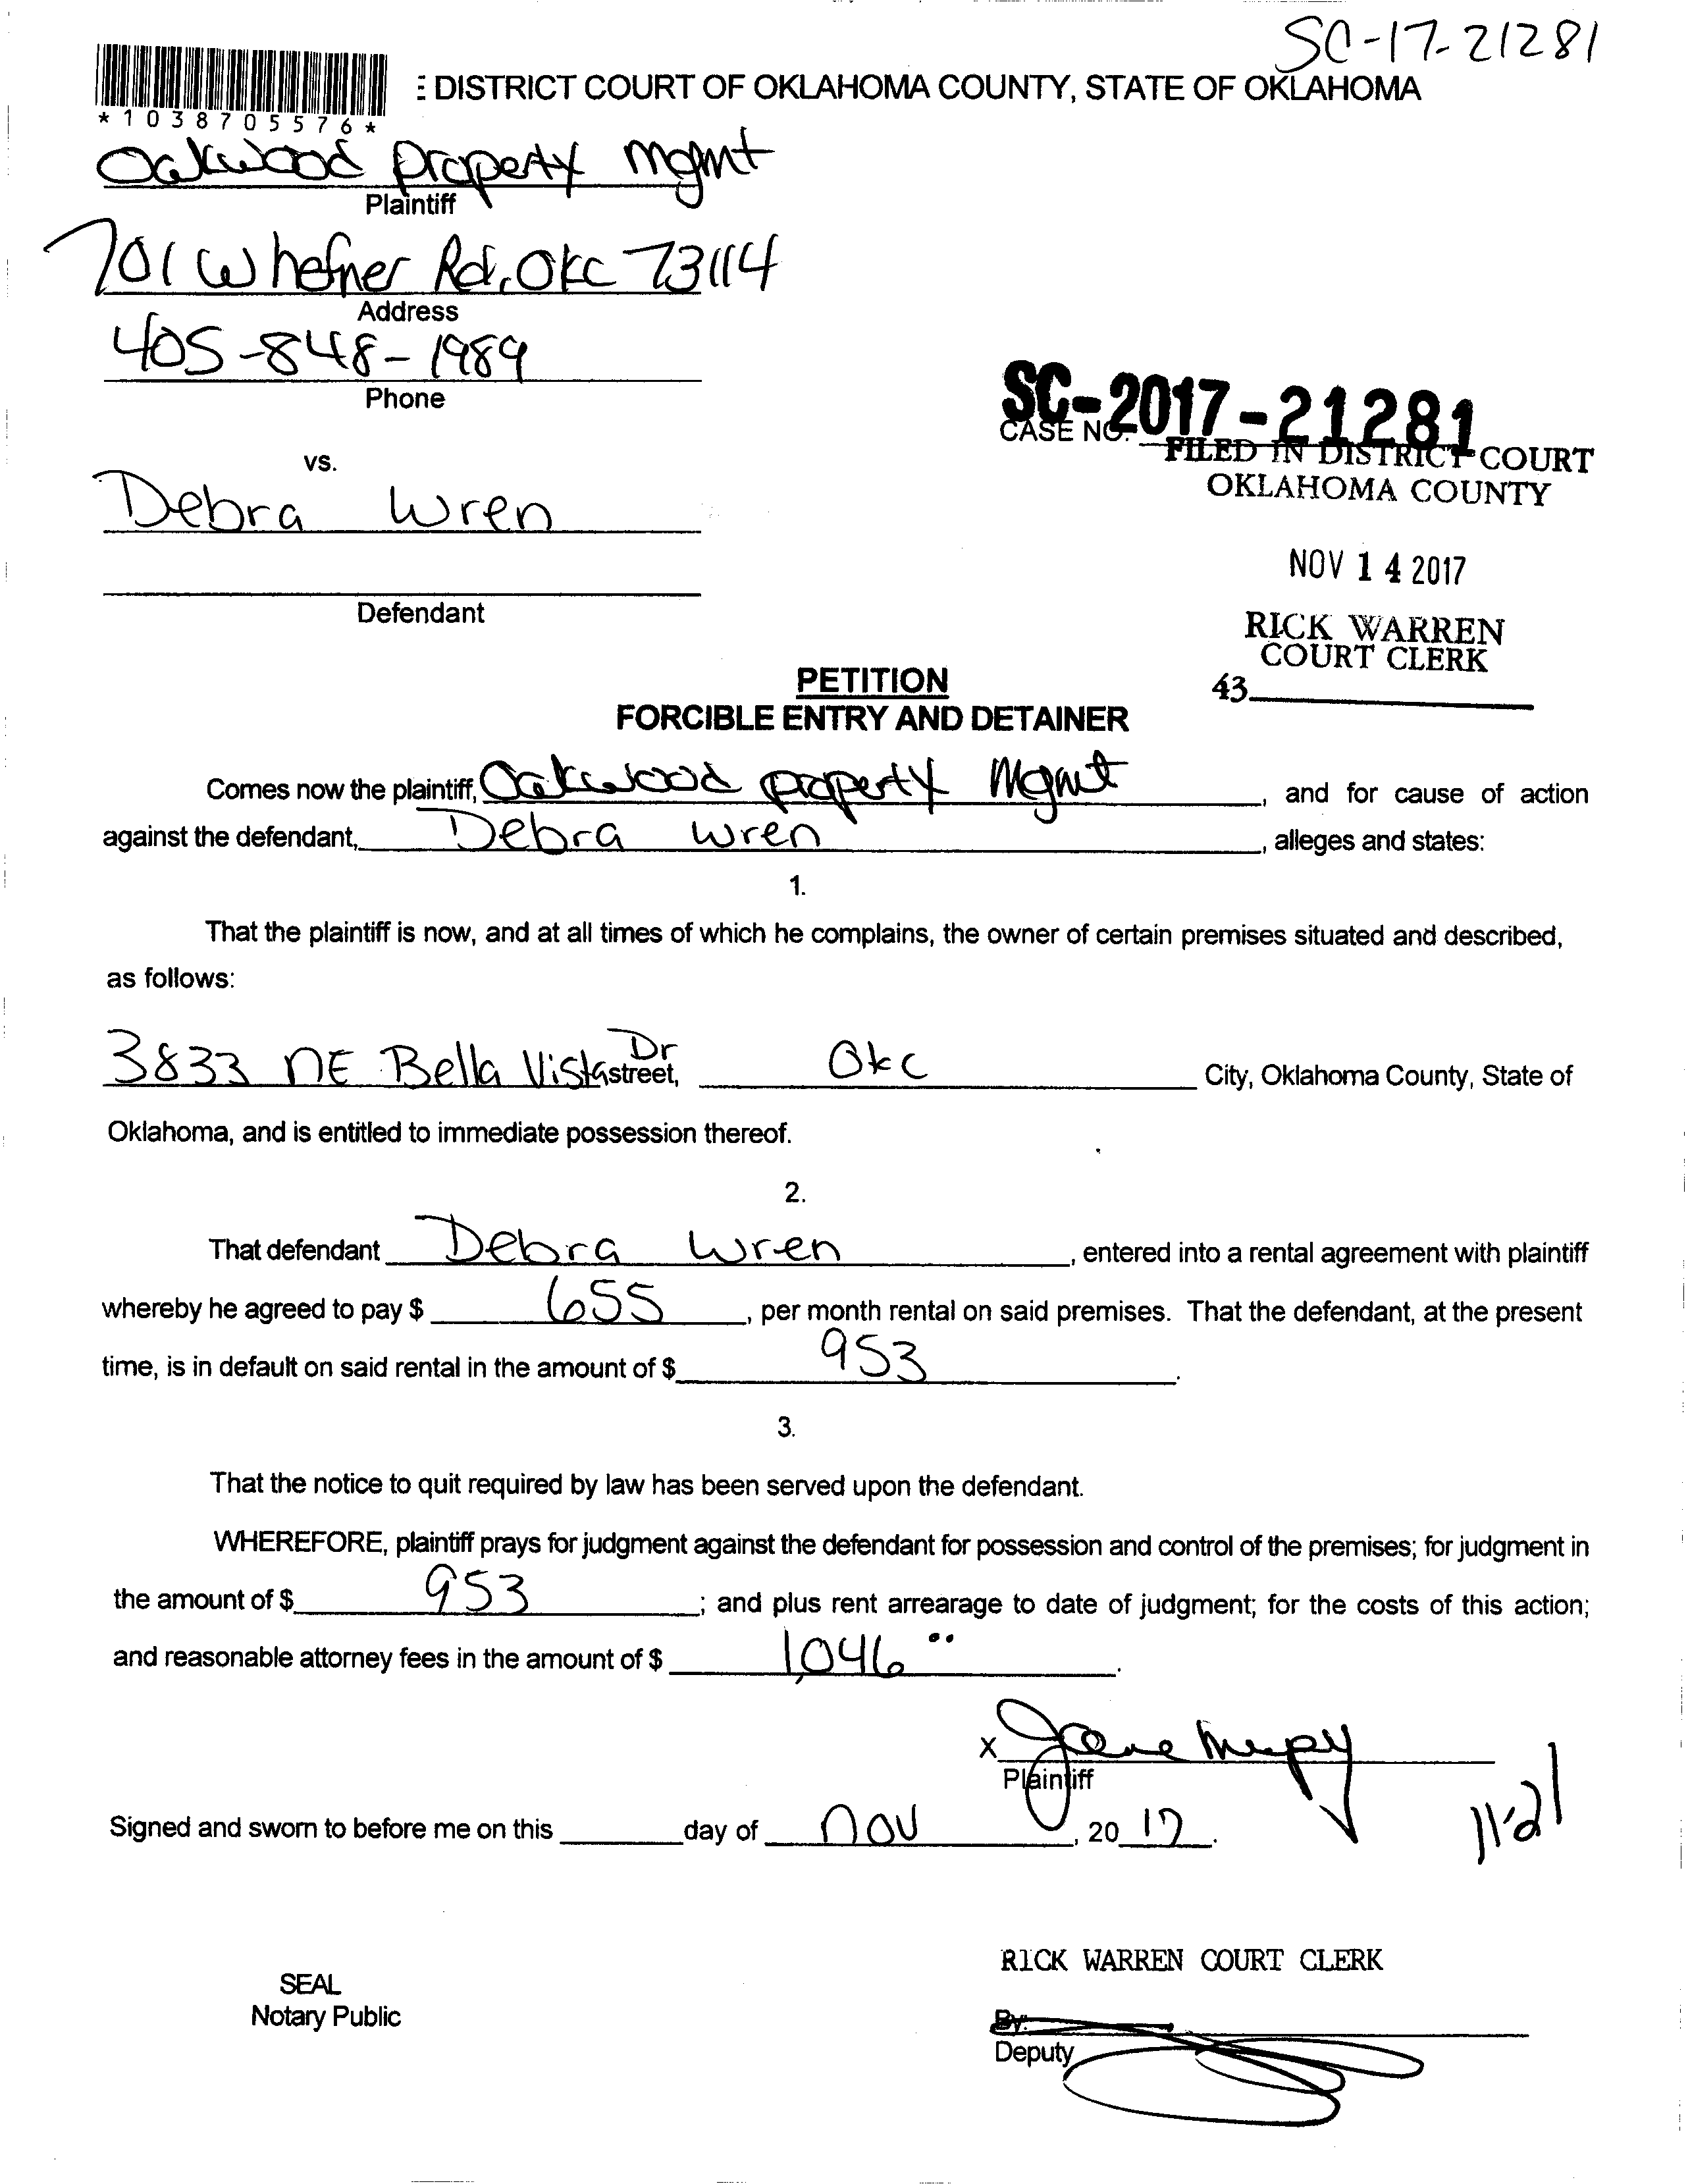 SC-17-21281
DISTRICT COURT OF OKLAHOMA COUNTY, STATE OF OKLAHOMA
*1038705576*
Oakwood Property Mgmt
Plaintiff
701 W hefner Rd, OKC 73114
Address
405-848-1989
Phone
SC-2017-21281
CASE NO.
FILED IN DISTRICT COURT
OKLAHOMA COUNTY
vs.
Debra Wren
NOV 14 2017
Defendant
RICK WARREN
COURT CLERK
43
PETITION
FORCIBLE ENTRY AND DETAINER
Comes now the plaintiff, Oakwood property Mgmt, and for cause of action
against the defendant, Debra Wren, alleges and states:
1.
That the plaintiff is now, and at all times of which he complains, the owner of certain premises situated and described,
as follows:
3833 NE Bella Vista Dr street, OKC City, Oklahoma County, State of
Oklahoma, and is entitled to immediate possession thereof.
2.
That defendant Debra Wren, entered into a rental agreement with plaintiff
whereby he agreed to pay $ 655, per month rental on said premises. That the defendant, at the present
time, is in default on said rental in the amount of $ 953.
3.
That the notice to quit required by law has been served upon the defendant.
WHEREFORE, plaintiff prays for judgment against the defendant for possession and control of the premises; for judgment in
the amount of $ 953; and plus rent arrearage to date of judgment; for the costs of this action;
and reasonable attorney fees in the amount of $ 1,046.
X
Plaintiff
11-21
Signed and sworn to before me on this day of Nov, 20 17.
RICK WARREN COURT CLERK
SEAL
Notary Public
By:
Deputy